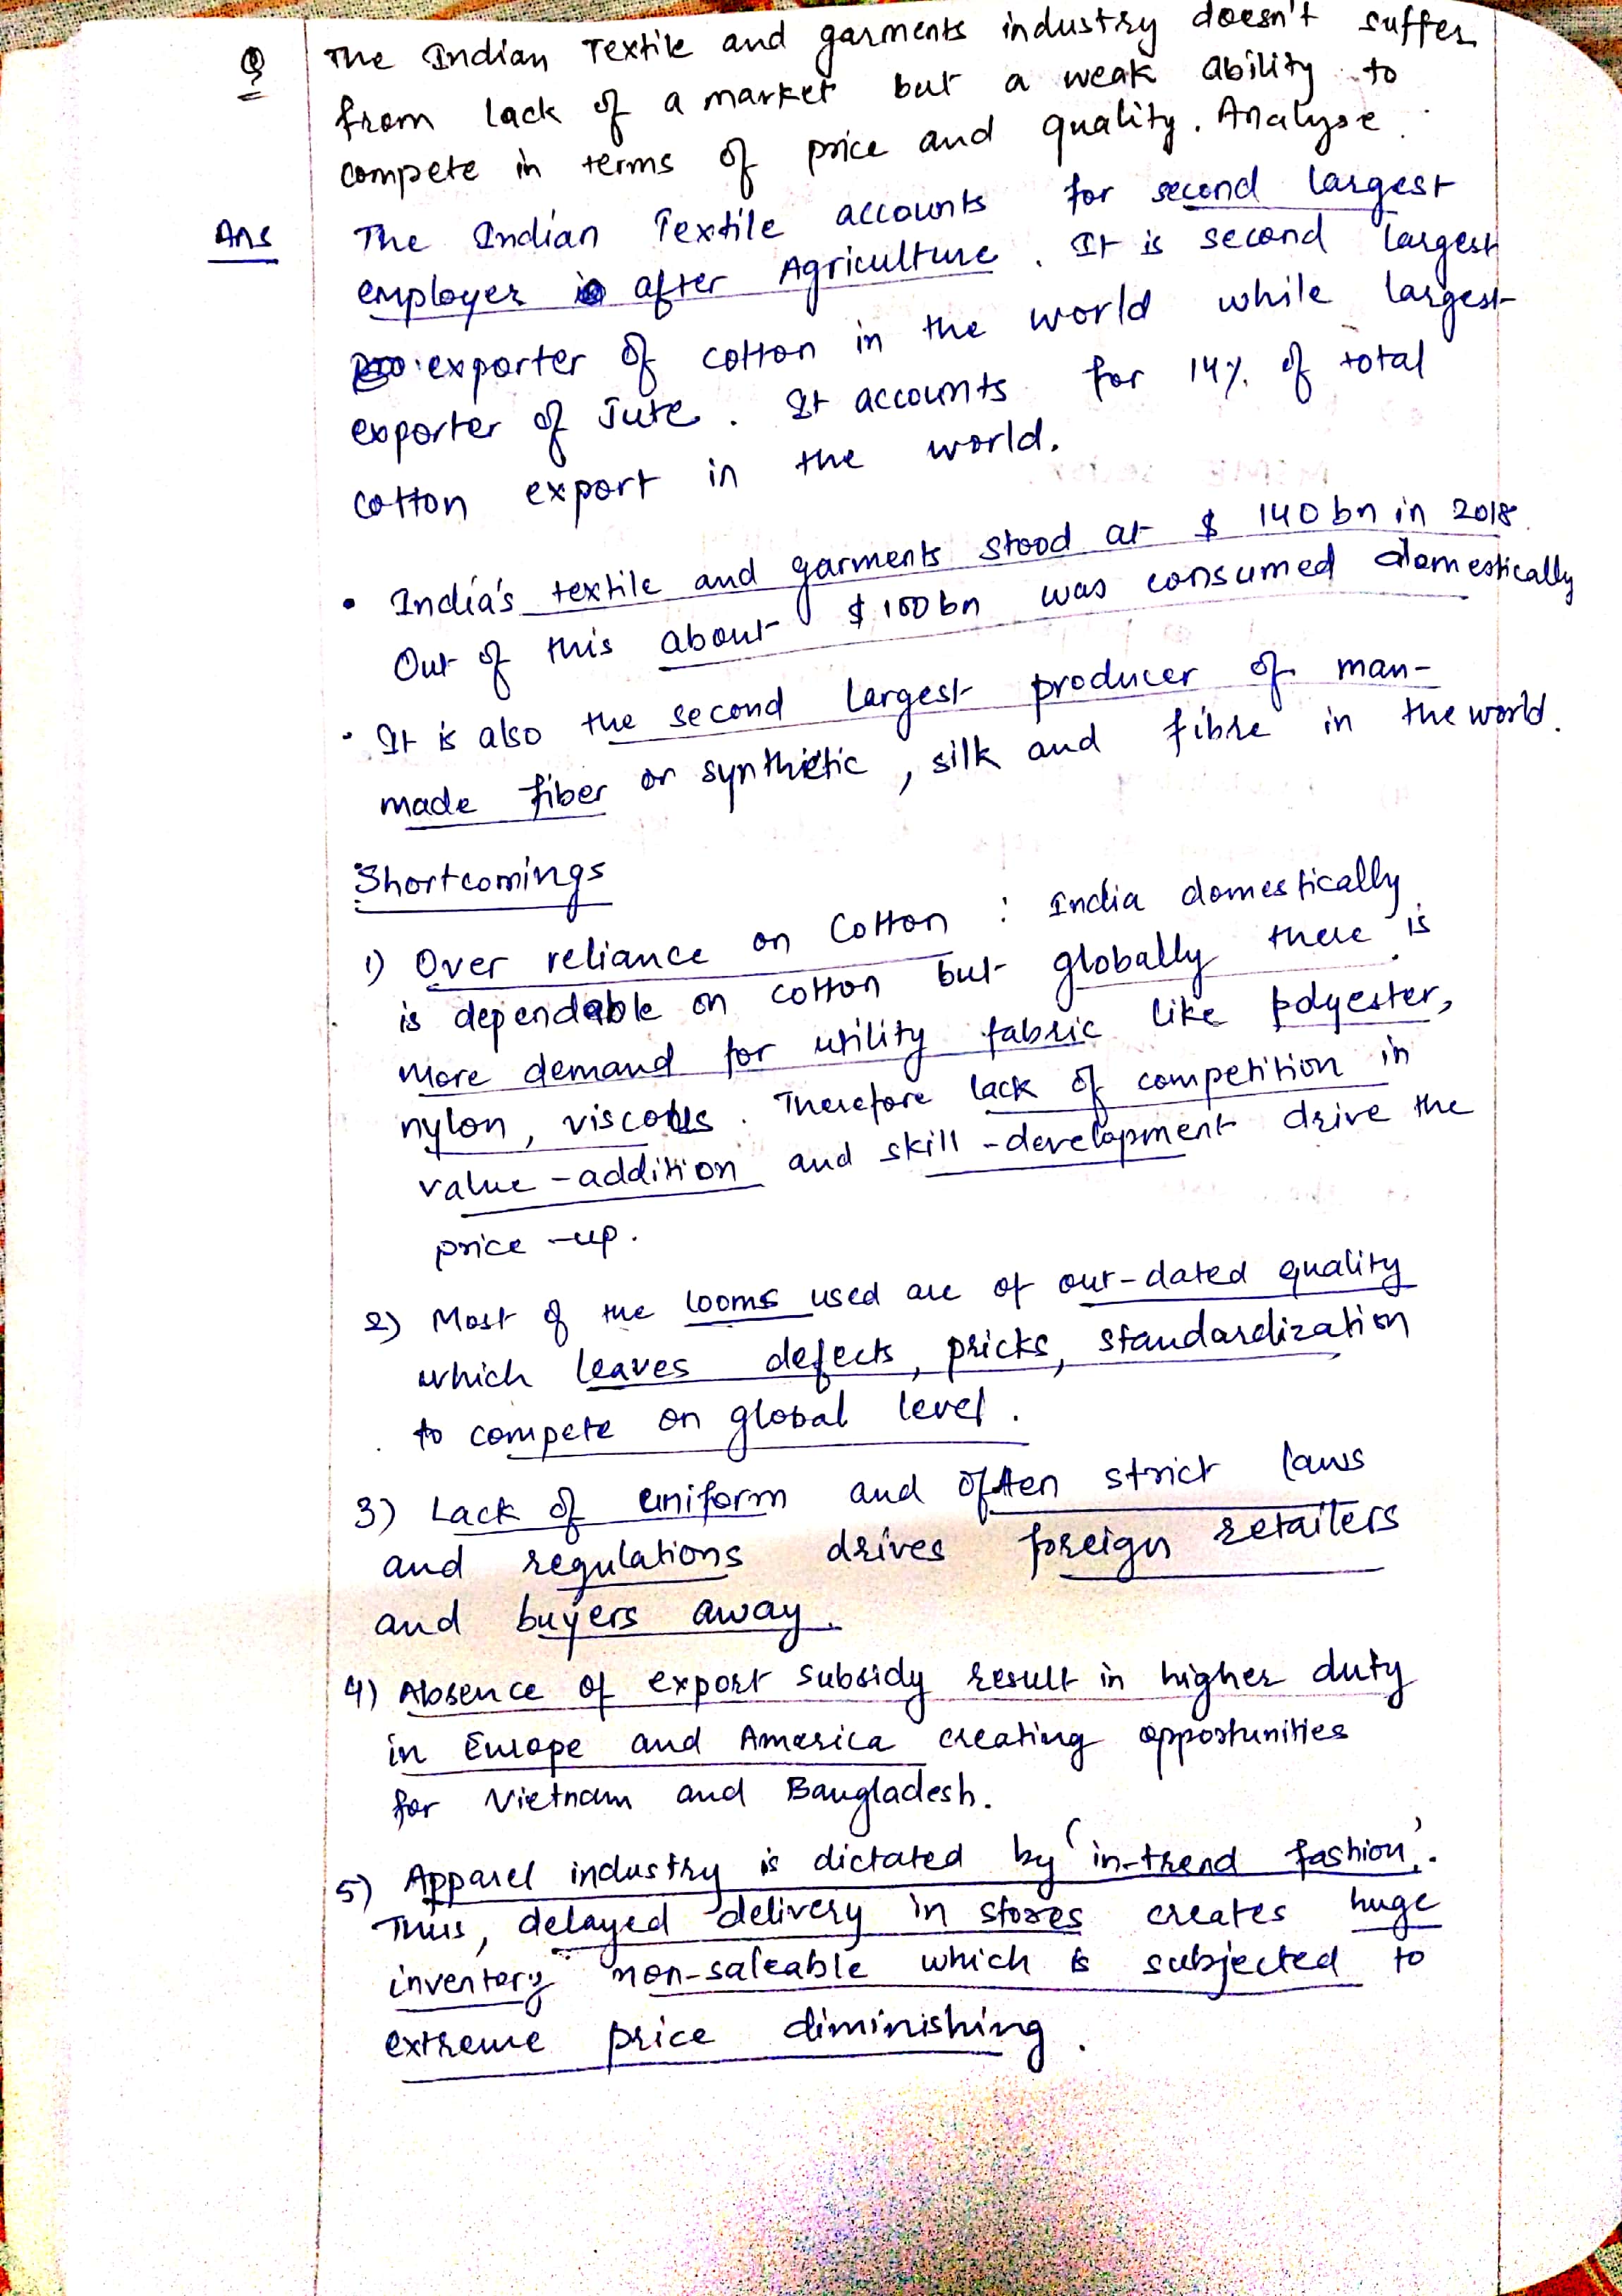 Q The Indian Textile and garments industry doesn't suffer
from lack of a market but a weak ability to
compete in terms of price and quality. Analyse.
Ans The Indian Textile accounts for second largest
employer after Agriculture. It is second largest
exporter of cotton in the world while largest
exporter of Jute. It accounts for 14% of total
cotton export in the world.
• India's textile and garments stood at $ 140 bn in 2018.
Out of this about $ 100 bn was consumed domestically
• It is also the second largest producer of man-
made fiber or synthietic, silk and fibre in the world.
Shortcomings
1) Over reliance on Cotton : India domestically
is dependable on cotton but globally there is
more demand for utility fabric like polyester,
nylon, viscous. Therefore lack of competition in
value-addition and skill-development drive the
price-up.
2) Most of the looms used are of out-dated quality
which leaves defects, pricks, standardization
to compete on global level.
3) Lack of uniform and often strict laws
and regulations drives foreign retailers
and buyers away.
4) Absence of export subsidy result in higher duty
in Europe and America creating opportunities
for Vietnam and Bangladesh.
5) Apparel industry is dictated by 'in-trend fashion'.
Thus, delayed delivery in stores creates huge
inventory non-saleable which is subjected to
extreme price diminishing.